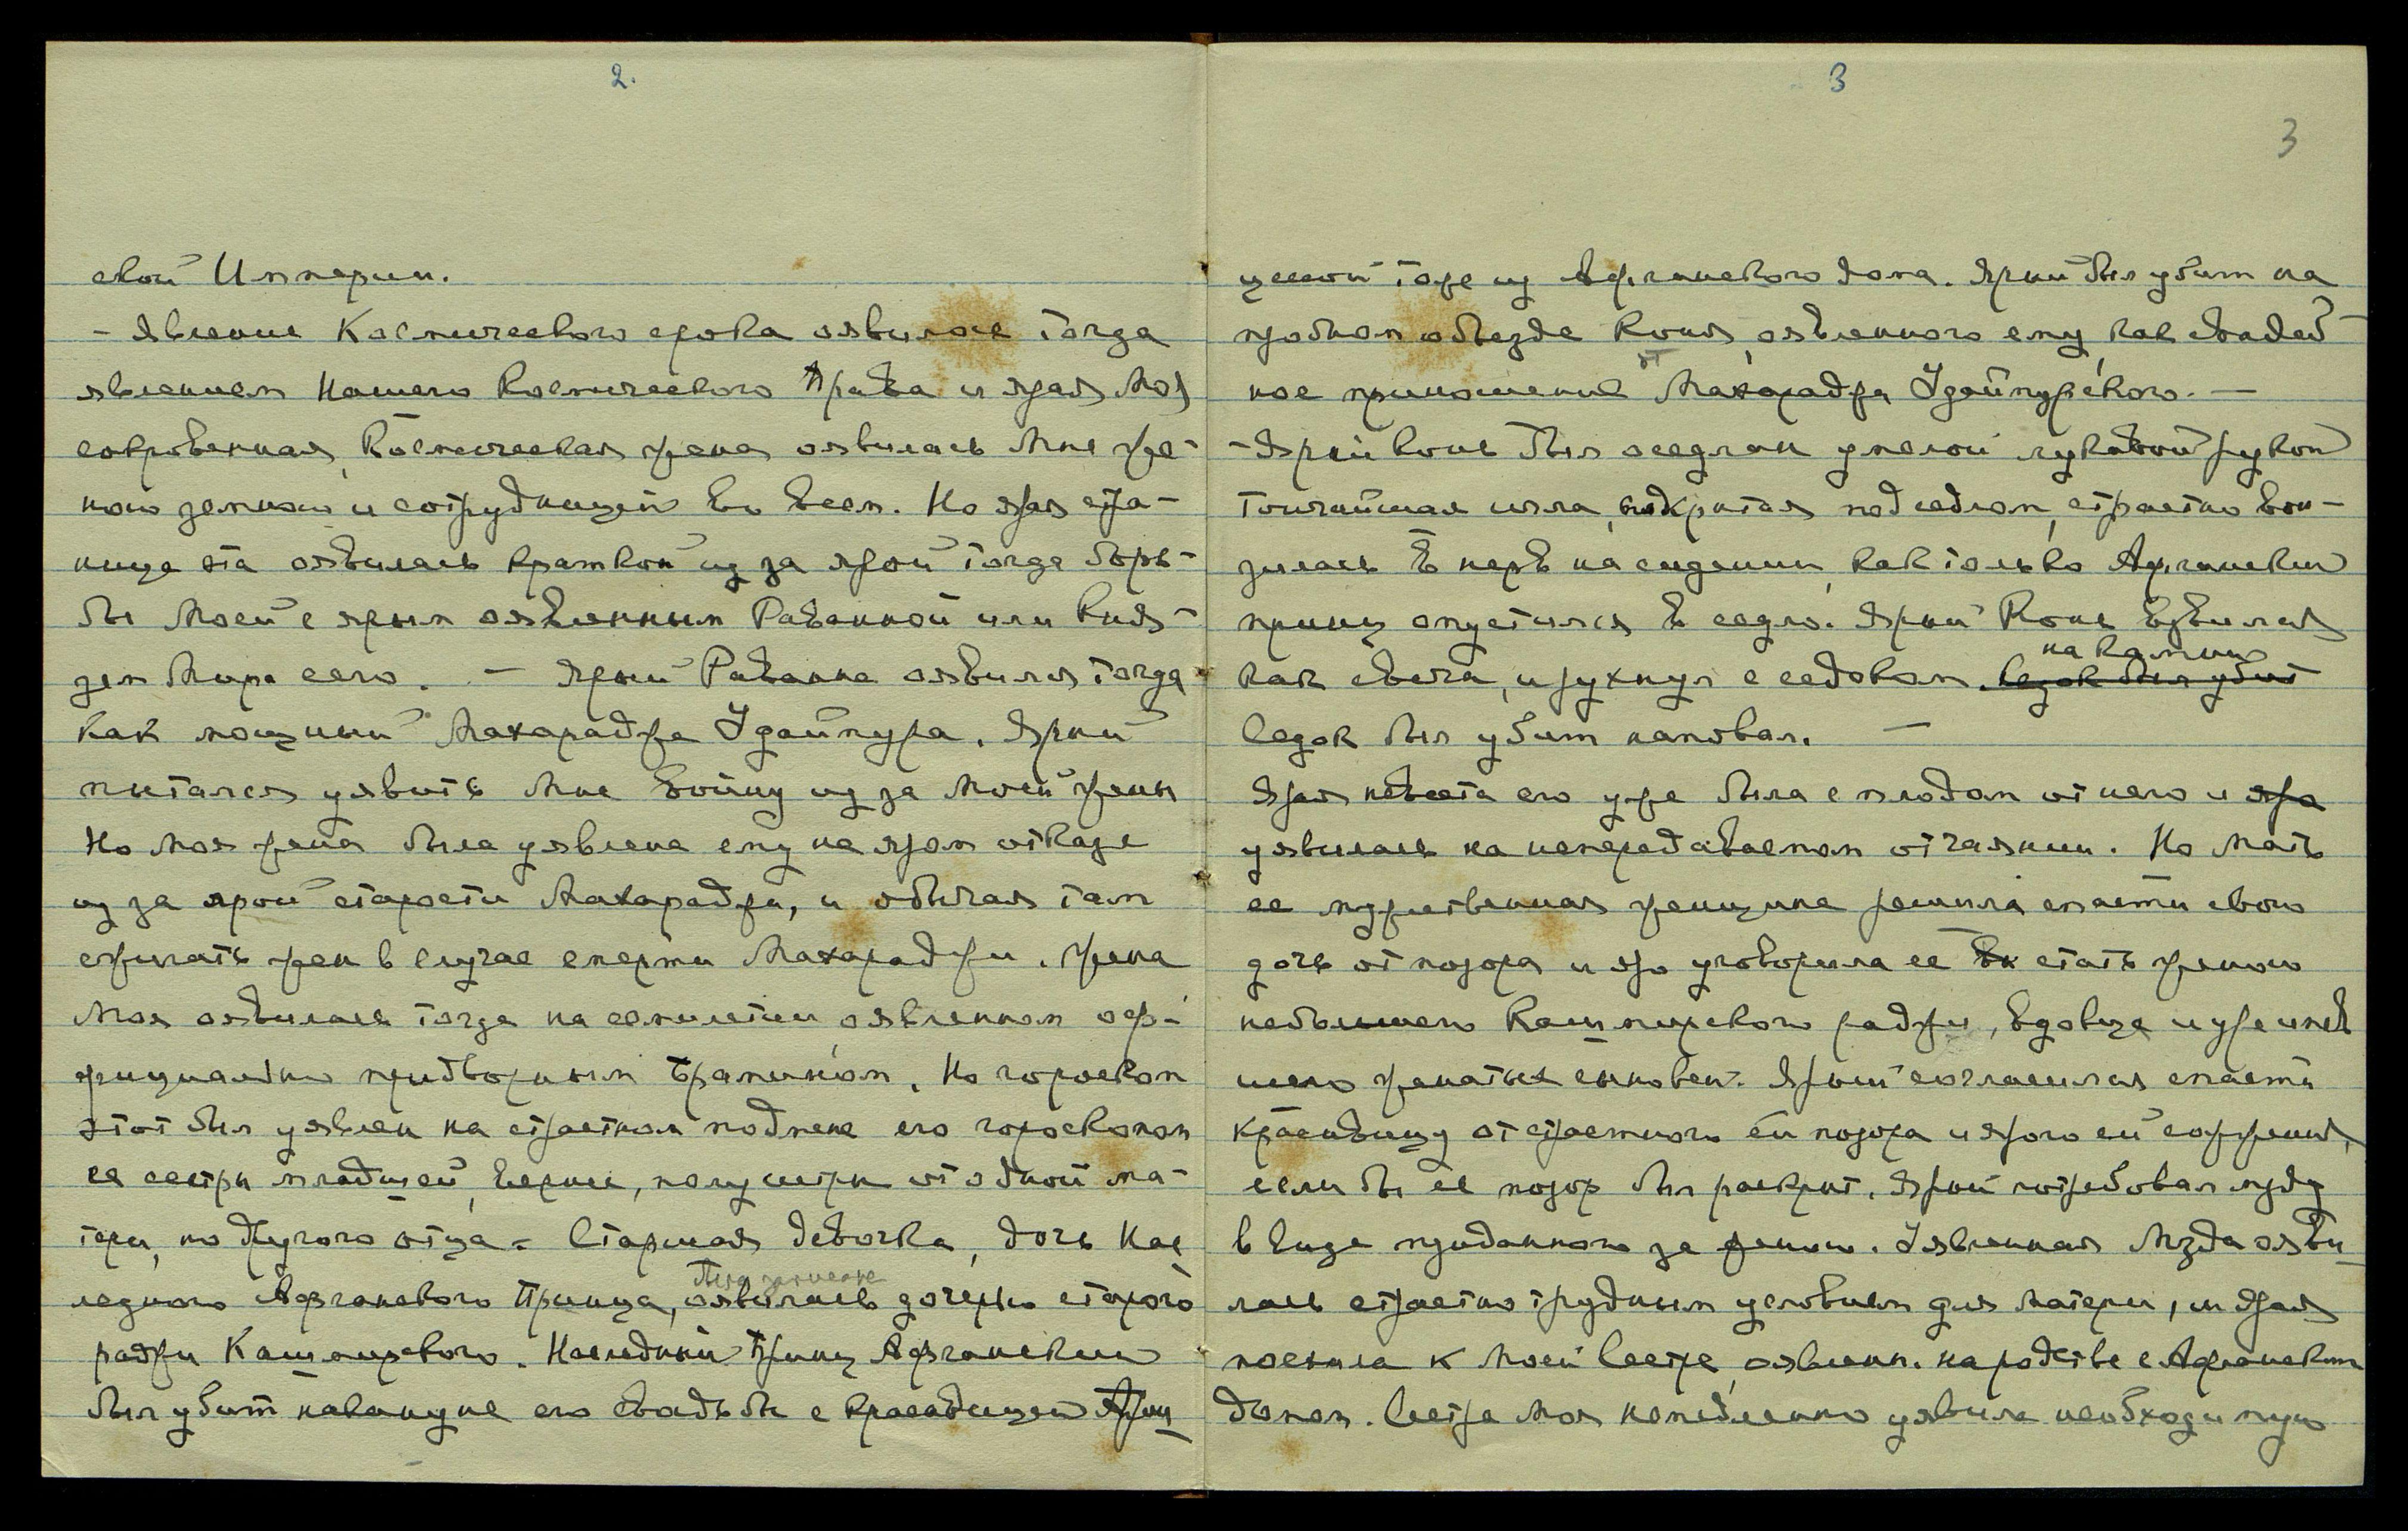 2.
свой Империи.
– Явление Космического срока оявилось тогда
явлением Нашего Космического Права и ярая Моя
сокровенная, Космическая жена оявилась Мне же-
ною земною и сотрудницей во всем. Но ярая стра-
ница эта оявилась краткой из за ярой тогда борь-
бы Моей с ярым оявленным Раванной или Кня-
зем Мира сего. – Ярый Раванна оявился тогда
как мощный Махараджа Удайпура. Ярый
пытался уявить Мне войну из за Моей жены
Но Моя жена была уявлена ему на яром отказе
из за ярой старости Махараджи, и обычая там
сжигать жен в случае смерти Махараджи. Жена
Моя оявилась тогда на семилетии, оявленном оф-
фициально придворным Брамином. Но гороскоп
этот был уявлен на страстной подмене его гороскопом
ее сестры младшей, вернее, полусестры от одной ма-
тери, но другого отца – Старшая девочка, дочь Нас
ледного Афганского Принца, оявилась дочерью старого
была записана
раджи Кашмирского. Наследный Принц Афганский
был убит накануне его свадьбы с красавицей Прин
3
3
цессой тоже из Афганского дома. Ярый был убит на
пробном объезде Коня, оявленного ему, как свадеб
ное приношение от Махараджи Удайпурского. –
– Ярый конь был оседлан умелой лукавой рукой
тончайшая игла, сокрытая под седлом, страстно вон-
зилась в нерв на сидении, как только Афганский
принц опустился в седло. Ярый Конь взвился
как свеча, и рухнул с седоком на камни. Седок был убит
Седок был убит наповал. –
Ярая невеста его уже была с плодом от него и яра
уявилась на непередаваемом отчаянии. Но мать
ее мужественная женщина решила спасти свою
дочь от позора и яро уговорила ее стать женою
небольшого Кашмирского раджи, вдовца и уже имев
шего женатых сыновей. Ярый согласился спасти
красавицу от страстного ей позора и ярого ей сожжения,
если бы ее позор был раскрыт. Ярый потребовал мзду
в виде приданного за женою. Уявленная Мзда ояви
лась страстно трудным условием для матери, и ярая
поехала к Моей Сестре, оявленн. на родстве с Афганским
домом. Сестра Моя немедленно уявила необходимую